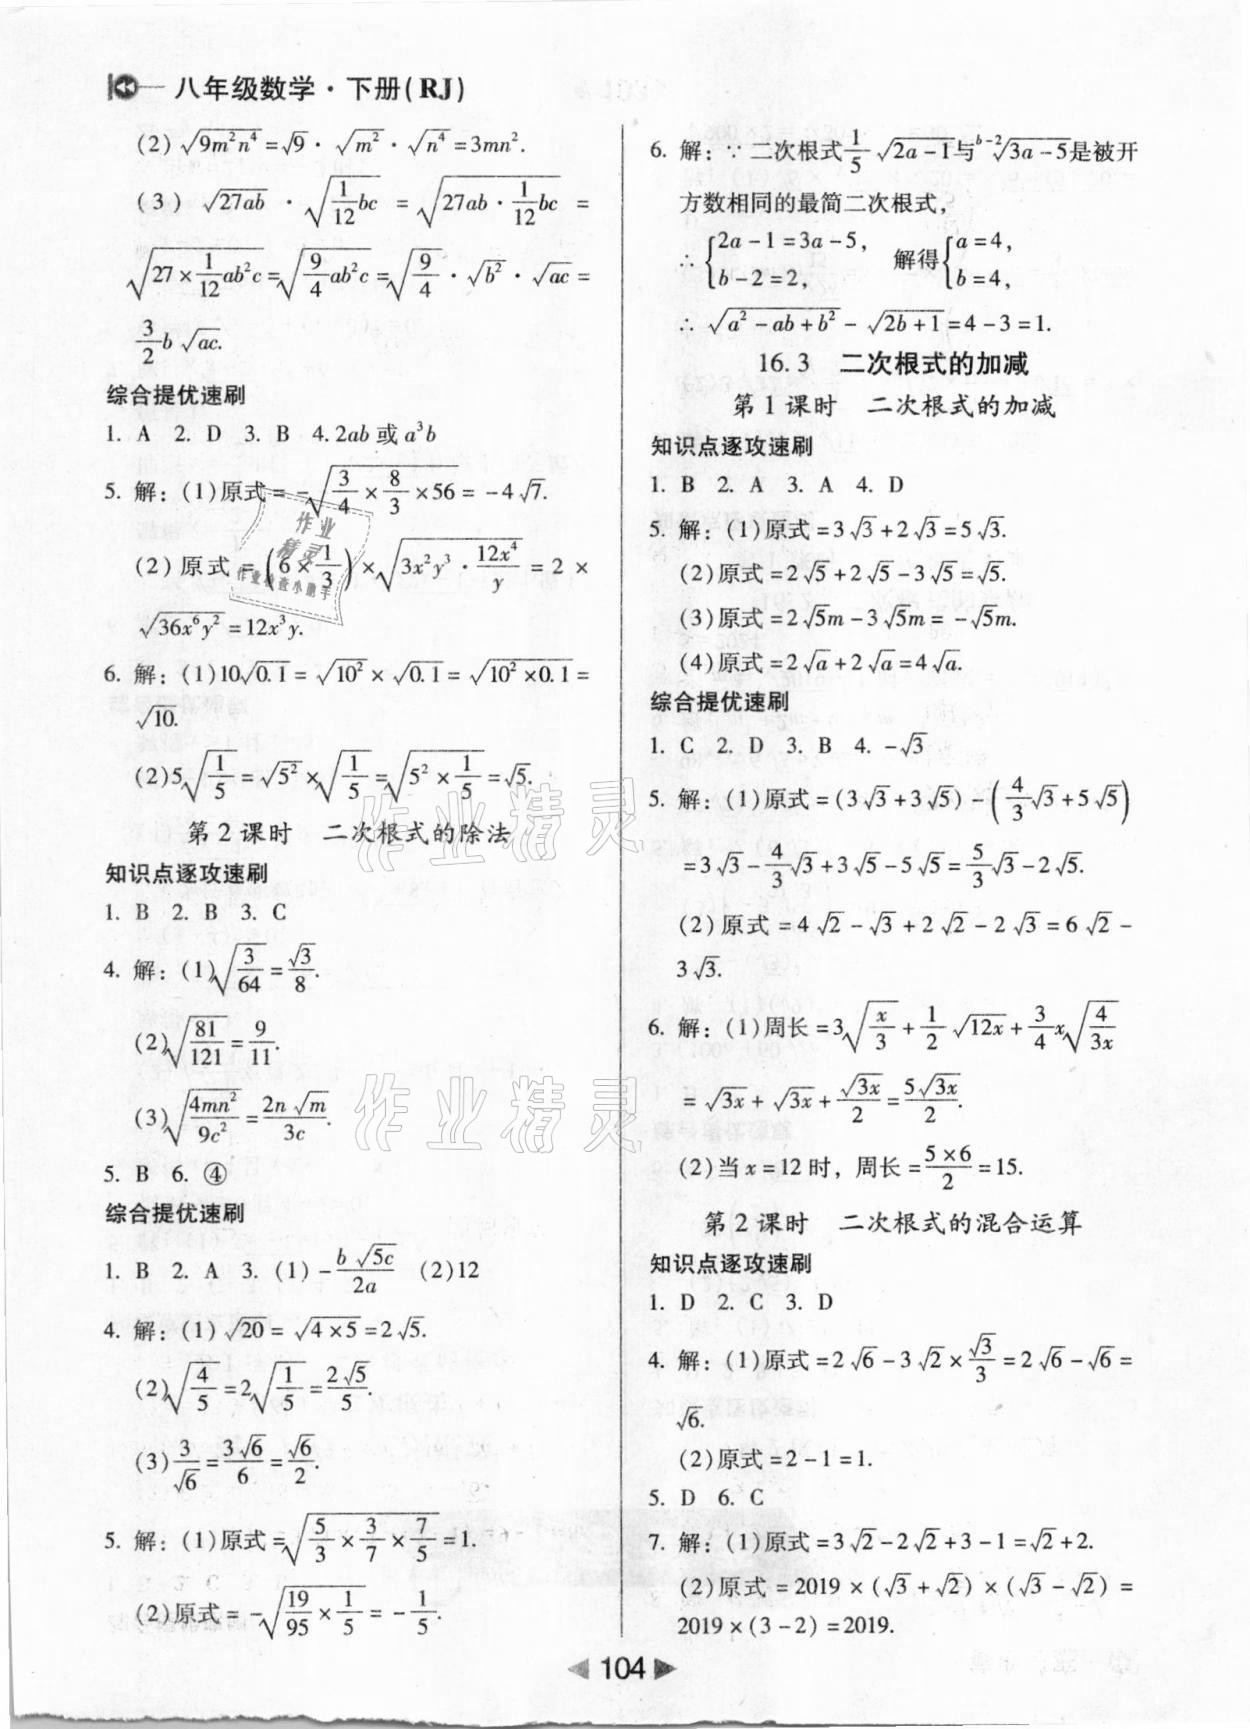 八年级数学·下册(RJ)
(2)√(9m²n⁴)=√9·√(m²)·√(n⁴)=3mn².
(3)√(27ab)·√(1/12 bc)=√(27ab·1/12 bc)=
√(27×1/12 ab²c)=√(9/4 ab²c)=√(9/4)·√(b²)·√(ac)=
3/2 b√(ac).
综合提优速刷
1. A 2. D 3. B 4. 2ab 或 a³b
5. 解:(1)原式=-√(3/4×8/3×56)=-4√7.
(2)原式=(6×1/3)×√(3x²y³·12x⁴/y)=2×
√(36x⁶y²)=12x³y.
6. 解:(1)10√0.1=√(10²)×√0.1=√(10²×0.1)=
√10.
(2)5√(1/5)=√(5²)×√(1/5)=√(5²×1/5)=√5.
第2课时 二次根式的除法
知识点逐攻速刷
1. B 2. B 3. C
4. 解:(1)√(3/64)=√3/8.
(2)√(81/121)=9/11.
(3)√(4mn²/9c²)=2n√m/3c.
5. B 6. ④
综合提优速刷
1. B 2. A 3. (1)-b√(5c)/2a (2)12
4. 解:(1)√20=√(4×5)=2√5.
(2)√(4/5)=2√(1/5)=2√5/5.
(3)3/√6=3√6/6=√6/2.
5. 解:(1)原式=√(5/3×3/7×7/5)=1.
(2)原式=-√(19/95×1/5)=-1/5.
6. 解:∵二次根式1/5√(2a-1)与ᵇ⁻²√(3a-5)是被开
方数相同的最简二次根式,
∴{2a-1=3a-5, b-2=2, 解得{a=4, b=4,
∴√(a²-ab+b²)-√(2b+1)=4-3=1.
16.3 二次根式的加减
第1课时 二次根式的加减
知识点逐攻速刷
1. B 2. A 3. A 4. D
5. 解:(1)原式=3√3+2√3=5√3.
(2)原式=2√5+2√5-3√5=√5.
(3)原式=2√(5m)-3√(5m)=-√(5m).
(4)原式=2√a+2√a=4√a.
综合提优速刷
1. C 2. D 3. B 4. -√3
5. 解:(1)原式=(3√3+3√5)-(4/3√3+5√5)
=3√3-4/3√3+3√5-5√5=5/3√3-2√5.
(2)原式=4√2-√3+2√2-2√3=6√2-
3√3.
6. 解:(1)周长=3√(x/3)+1/2√(12x)+3/4 x√(4/3x)
=√(3x)+√(3x)+√(3x)/2=5√(3x)/2.
(2)当x=12时,周长=5×6/2=15.
第2课时 二次根式的混合运算
知识点逐攻速刷
1. D 2. C 3. D
4. 解:(1)原式=2√6-3√2×√3/3=2√6-√6=
√6.
(2)原式=2-1=1.
5. D 6. C
7. 解:(1)原式=3√2-2√2+3-1=√2+2.
(2)原式=2019×(√3+√2)×(√3-√2)=
2019×(3-2)=2019.
104
作业精灵
作业检查小助手
作业精灵
作业精灵